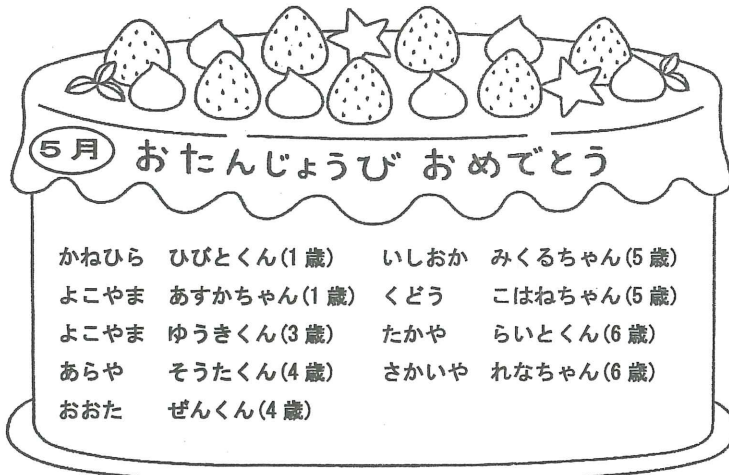 5月 おたんじょうび おめでとう
かねひら ひびとくん(1歳)
よこやま あすかちゃん(1歳)
よこやま ゆうきくん(3歳)
あらや そうたくん(4歳)
おおた ぜんくん(4歳)
いしおか みくるちゃん(5歳)
くどう こはねちゃん(5歳)
たかや らいとくん(6歳)
さかいや れなちゃん(6歳)